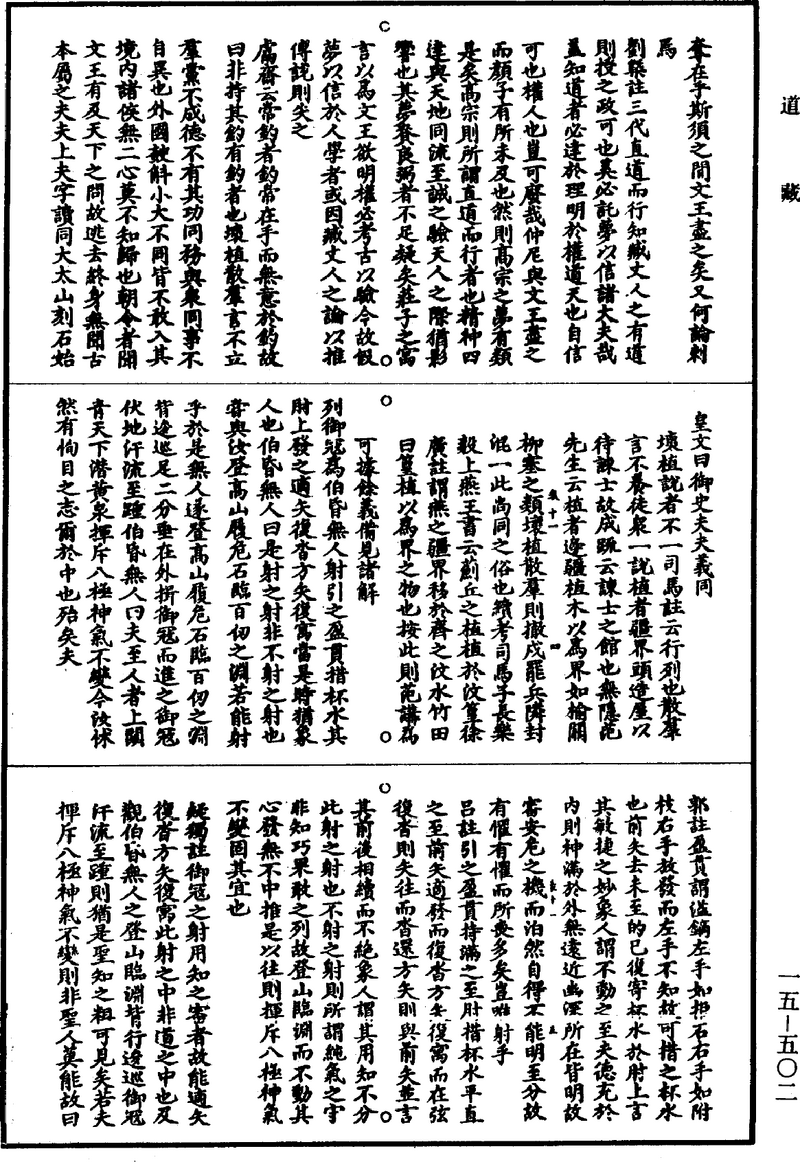 道藏
一五—五〇二
奪在乎斯須之間文王盡之矣又何論刺
焉
劉槩註三代直道而行知臧丈人之有道
則授之政可也奚必託夢以信諸大夫哉
蓋知道者必達於理明於權道天也自信
可也權人也豈可廢哉仲尼與文王盡之
而顏子有所未及也然則高宗之夢有類
是矣高宗則所謂直道而行者也精神四
達與天地同流至誠之驗天人之際猶影
響也其夢賚良弼者不足疑矣莊子之寓
言以為文王欲明權必考古以驗今故假
夢以信於人學者或因臧丈人之論以推
傅說則失之
鬳齋云常釣者釣常在手而無意於釣故
曰非持其釣有釣者也壞植散羣言不立
羣黨不成德不有其功同務與衆同事不
自異也外國斔斛小大不同皆不敢入其
境内諸侯無二心莫不知歸也朝令者聞
文王有及天下之問故逃去終身無聞古
本屬之夫夫上夫字讀同大太山刻石始
皇文曰御史夫夫義同
壞植說者不一司馬註云行列也散羣
言不養徒衆一說植者疆界頭造屋以
待諫士故成疏云諫士之館也無隱范
先生云植者邊疆植木以為界如榆關
柳塞之類壞植散羣則撤戍罷兵隣封
混一此尚同之俗也續考司馬子長樂
毅上燕王書云薊丘之植植於汶篁徐
廣註謂燕之疆界移於齊之汶水竹田
曰篁植以為界之物也按此則范講為
可據餘義備見諸解
列御冦為伯昏無人射引之盈貫措杯水其
肘上發之適矢復沓方矢復寓當是時猶象
人也伯昏無人曰是射之射非不射之射也
嘗與汝登高山履危石臨百仞之淵若能射
乎於是無人遂登高山履危石臨百仞之淵
背逡巡足二分垂在外揖御冦而進之御冦
伏地汗流至踵伯昏無人曰夫至人者上闚
青天下潛黃泉揮斥八極神氣不變今汝怵
然有恂目之志爾於中也殆矣夫
郭註盈貫謂溢鏑左手如拒石右手如附
枝右手放發而左手不知故可措之杯水
也前矢去未至的已復寄杯水於肘上言
其敏捷之妙象人謂不動之至夫德充於
内則神滿於外無遠近幽深所在皆明故
審安危之機而泊然自得不能明至分故
有懼有懼而所喪多矣豈唯射乎
呂註引之盈貫持滿之至肘措杯水平直
之至前矢適發而復沓方矢復寓而在弦
復沓則矢往而沓還方矢則與前矢並言
其前後相續而不絕象人謂其用知不分
此射之射也不射之射則所謂純氣之守
非知巧果敢之列故登山臨淵而不動其
心發無不中推是以往則揮斥八極神氣
不變固其宜也
疑獨註御冦之射用知之審者故能適矢
復沓方矢復寓此射之中非道之中也及
觀伯昏無人之登山臨淵背行逡巡御冦
汗流至踵則猶是聖知之粗可見矣若夫
揮斥八極神氣不變則非聖人莫能故曰